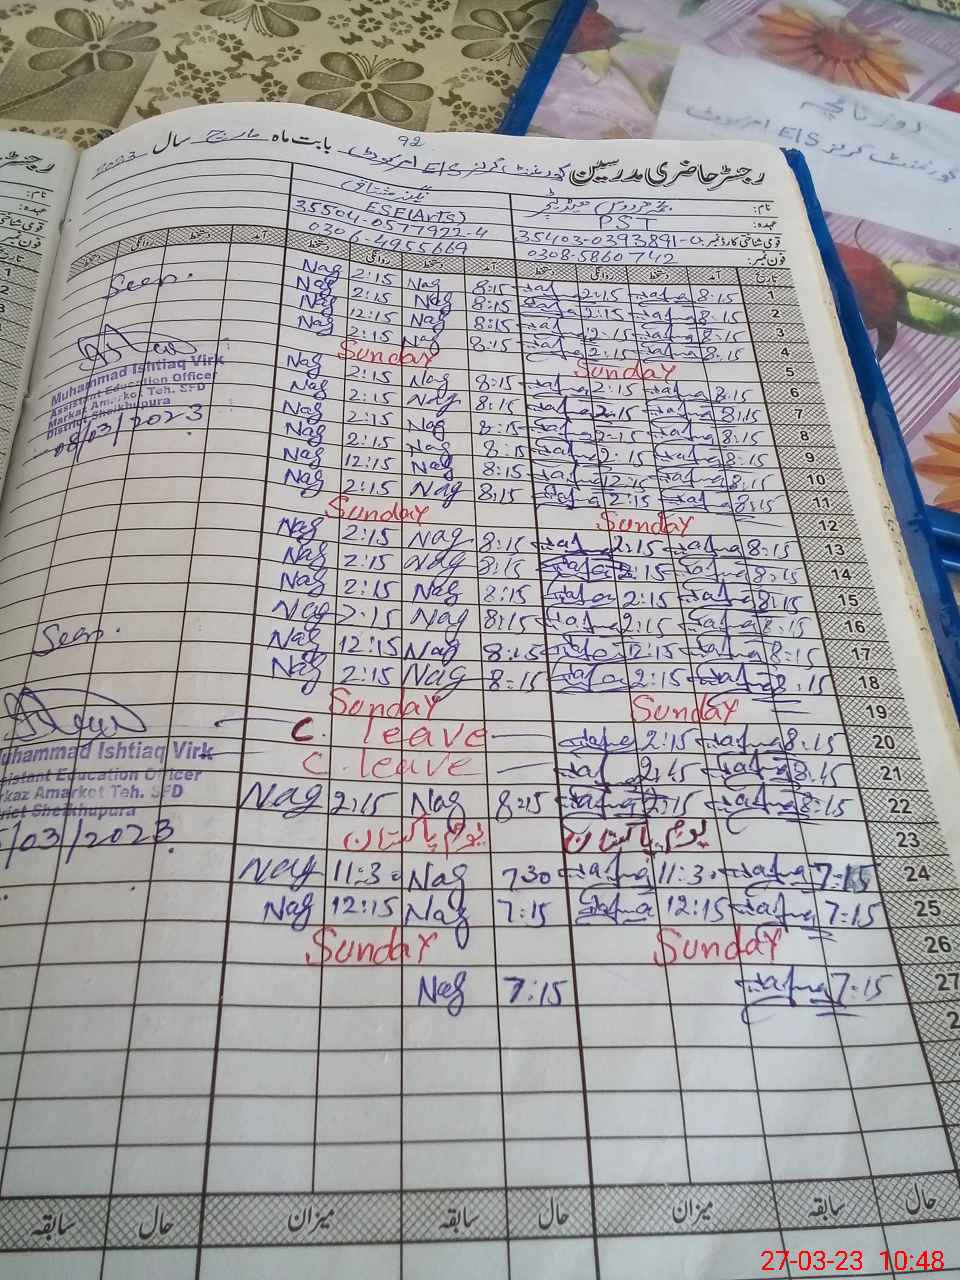 روزنامچہ
گورنمنٹ گرلز E/S امرکوٹ
92
رجسٹر حاضری مدرسین گورنمنٹ گرلز E/S امرکوٹ بابت ماہ مارچ سال 2023
نام:
عہدہ: PST ESE(Arts)
قومی شناختی کارڈ نمبر: 35403-0393891-0 35504-0577922-4
فون نمبر: 0308-5860742 0306-4955669
تاریخ آمد دستخط روانگی دستخط آمد دستخط روانگی دستخط آمد دستخط روانگی دستخط
1 8:15 2:15 8:15 Nag 2:15 Nag
2 8:15 2:15 8:15 Nag 2:15 Nag
3 8:15 12:15 8:15 Nag 12:15 Nag
4 8:15 2:15 8:15 Nag 2:15 Nag
5 Sunday Sunday
6 8:15 2:15 8:15 Nag 2:15 Nag
8:15 2:15 8:15 Nag 2:15 Nag
8 8:15 2:15 8:15 Nag 2:15 Nag
9 8:15 2:15 8:15 Nag 2:15 Nag
10 8:15 12:15 8:15 Nag 12:15 Nag
11 8:15 2:15 8:15 Nag 2:15 Nag
12 Sunday Sunday
13 8:15 2:15 8:15 Nag 2:15 Nag
14 8:15 2:15 8:15 Nag 2:15 Nag
15 8:15 2:15 8:15 Nag 2:15 Nag
16 8:15 2:15 8:15 Nag 2:15 Nag
17 8:15 12:15 8:15 Nag 12:15 Nag
18 8:15 2:15 8:15 Nag 2:15 Nag
19 Sunday Sunday
20 8:15 2:15 C. leave
21 8:15 2:15 C. leave
22 8:15 2:15 8:15 Nag 2:15 Nag
23 یوم پاکستان یوم پاکستان
24 7:15 11:30 730 Nag 11:30 Nag
25 7:15 12:15 7:15 Nag 12:15 Nag
26 Sunday Sunday
27 7:15 7:15 Nag
2
حال سابقہ میزان حال سابقہ میزان حال سابقہ
Seen.
Muhammad Ishtiaq Virk
Assistant Education Officer
Markaz Amarkot Teh. SFD
District Sheikhupura
08/03/2023
Seen.
uhammad Ishtiaq Virk
sistant Education Officer
rkaz Amarkot Teh. SFD
rict Sheikhupura
/03/2023
27-03-23 10:48